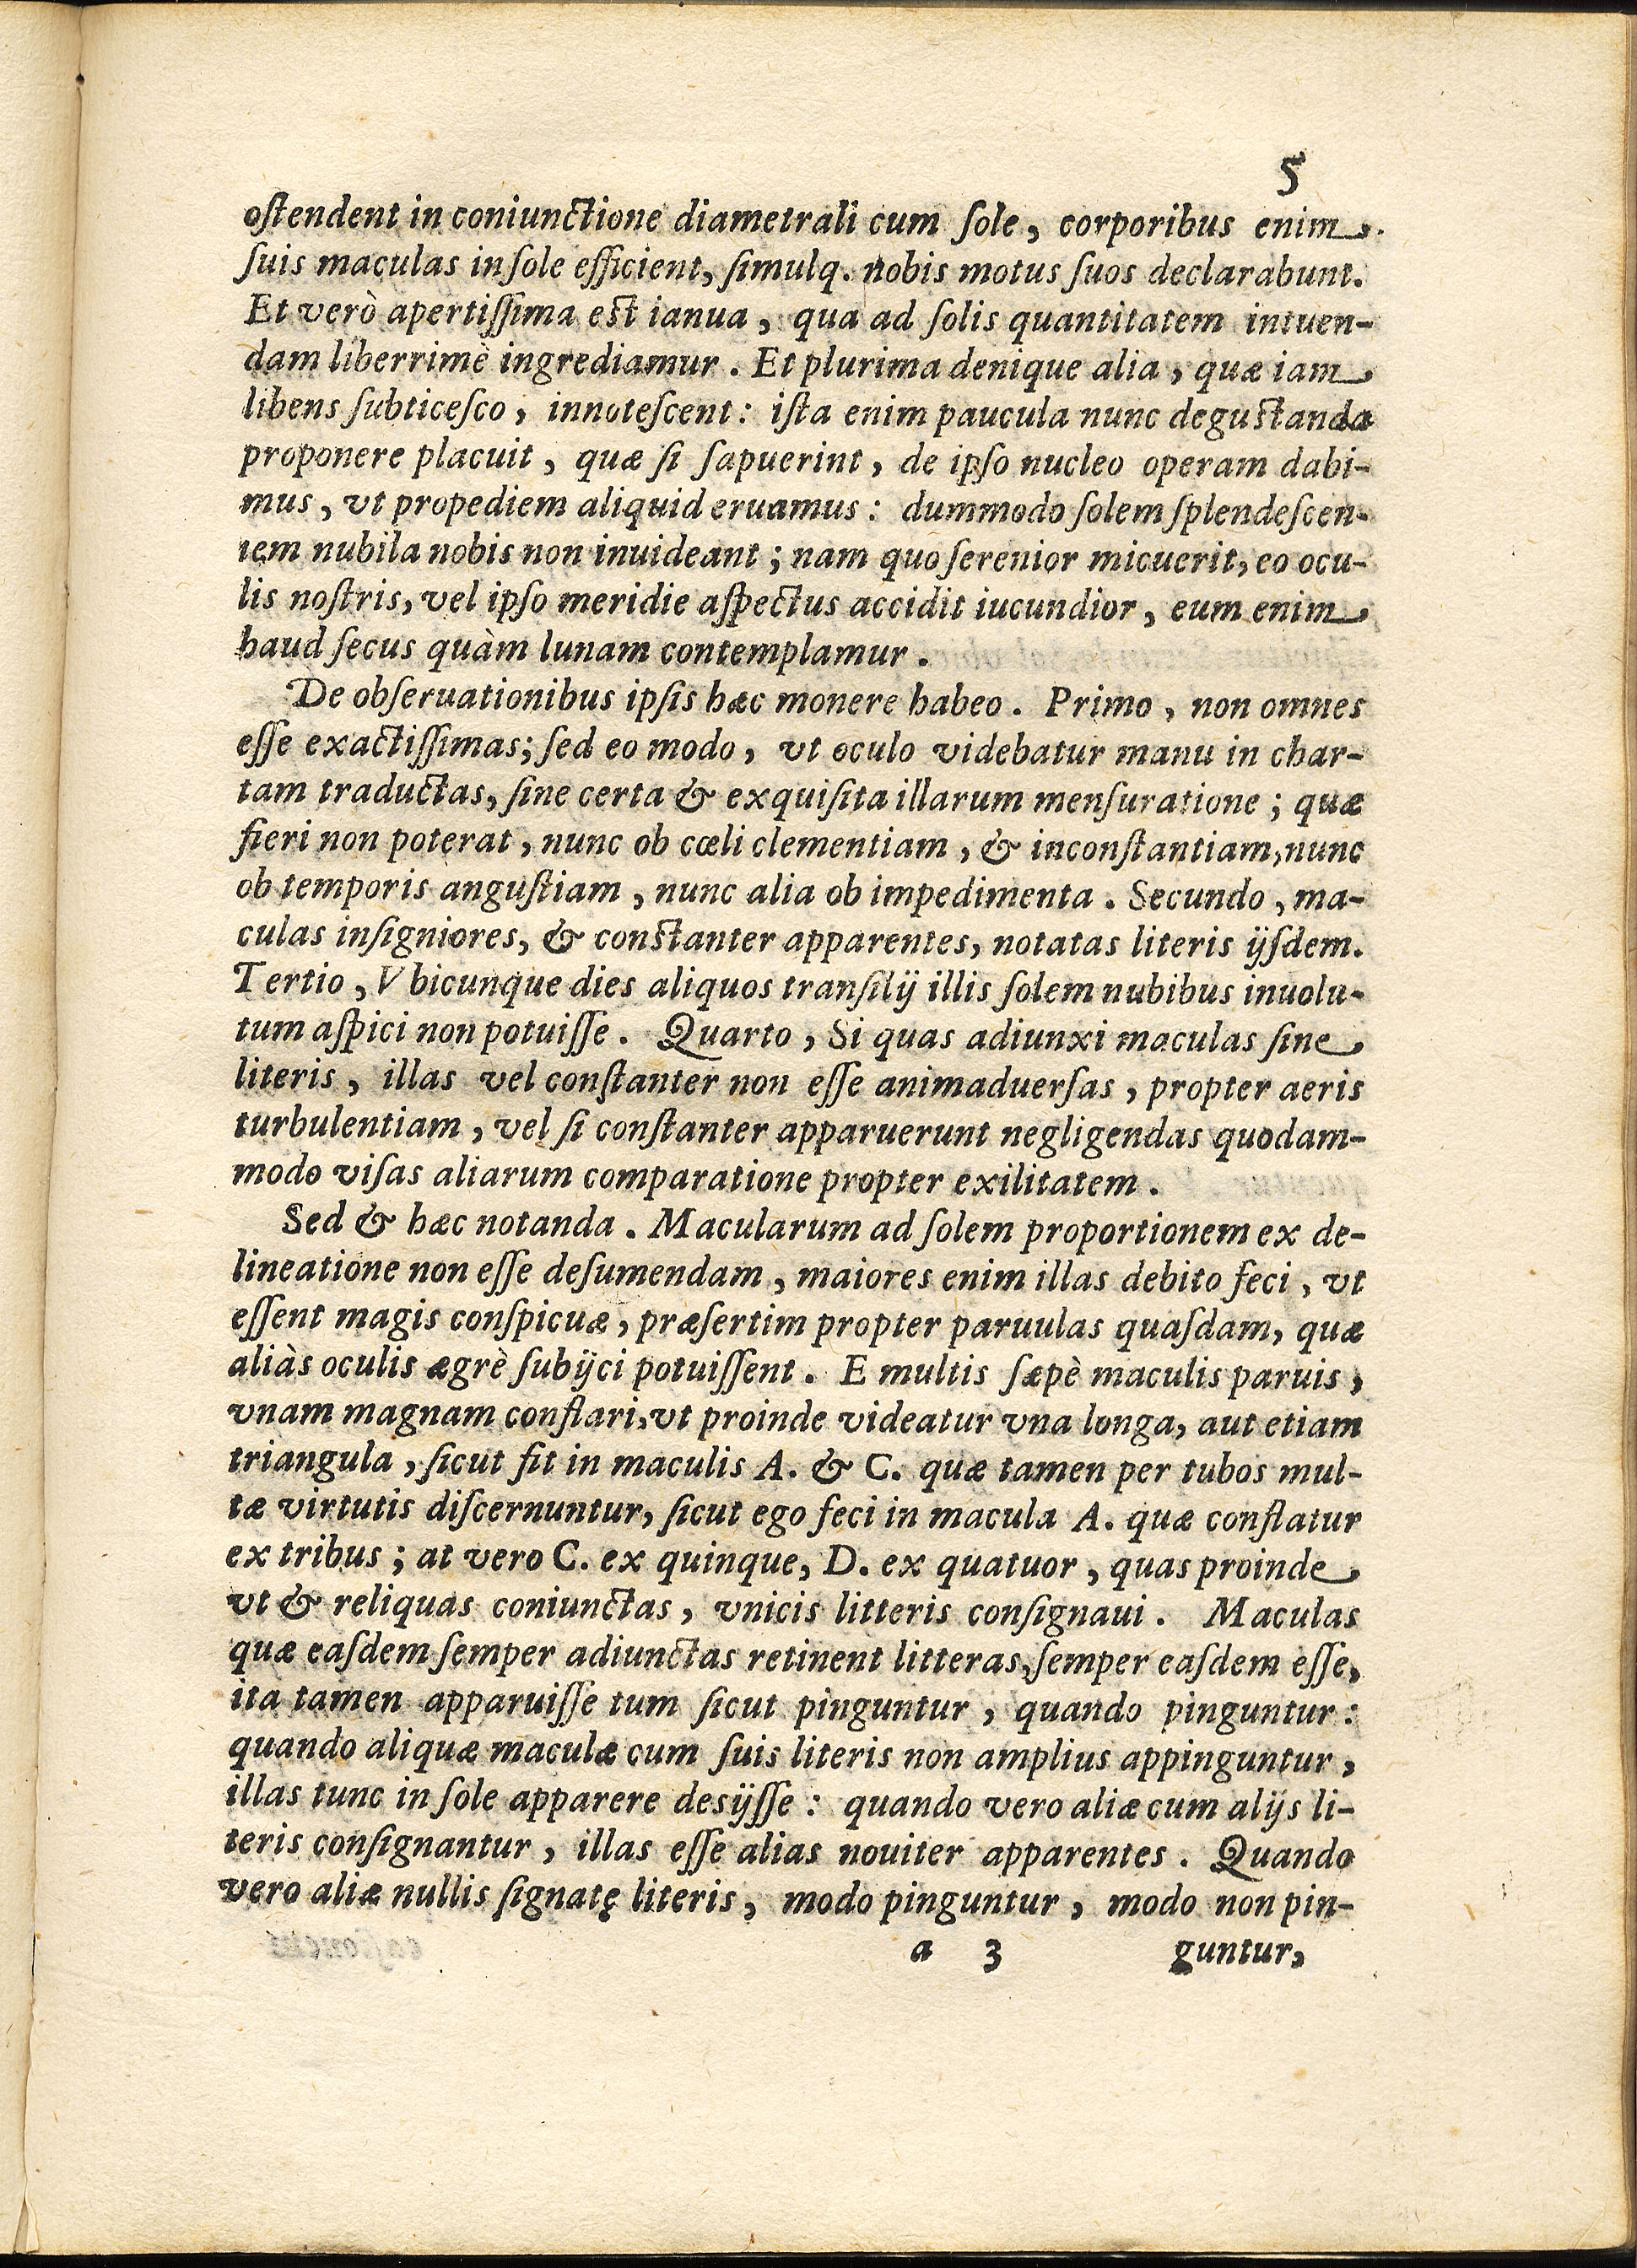 5
oſtendent in coniunctione diametrali cum ſole, corporibus enim
ſuis maculas in ſole efficient, ſimulq. nobis motus ſuos declarabunt.
Et verò apertiſſima est ianua, qua ad ſolis quantitatem intuen-
dam liberrimè ingrediamur. Et plurima denique alia, quæ iam
libens ſubticeſco, innoteſcent: iſta enim paucula nunc degustanda
proponere placuit, quæ ſi ſapuerint, de ipſo nucleo operam dabi-
mus, vt propediem aliquid eruamus: dummodo ſolem ſplendeſcen-
tem nubila nobis non inuideant; nam quo ſerenior micuerit, eo ocu-
lis noſtris, vel ipſo meridie aſpectus accidit iucundior, eum enim
haud ſecus quàm lunam contemplamur.
De obſeruationibus ipſis hæc monere habeo. Primo, non omnes
eſſe exactiſſimas; ſed eo modo, vt oculo videbatur manu in char-
tam traductas, ſine certa & exquiſita illarum menſuratione; quæ
fieri non poterat, nunc ob cœli clementiam, & inconſtantiam, nunc
ob temporis anguſtiam, nunc alia ob impedimenta. Secundo, ma-
culas inſigniores, & constanter apparentes, notatas literis ijſdem.
Tertio, Vbicunque dies aliquos tranſilij illis ſolem nubibus inuolu-
tum aſpici non potuiſſe. Quarto, Si quas adiunxi maculas ſine
literis, illas vel conſtanter non eſſe animaduerſas, propter aeris
turbulentiam, vel ſi conſtanter apparuerunt negligendas quodam-
modo viſas aliarum comparatione propter exilitatem.
Sed & hæc notanda. Macularum ad ſolem proportionem ex de-
lineatione non eſſe deſumendam, maiores enim illas debito feci, vt
eſſent magis conſpicuæ, præſertim propter paruulas quaſdam, quæ
aliàs oculis ægrè ſubijci potuiſſent. E multis ſæpè maculis paruis,
vnam magnam conflari, vt proinde videatur vna longa, aut etiam
triangula, ſicut fit in maculis A. & C. quæ tamen per tubos mul-
tæ virtutis diſcernuntur, ſicut ego feci in macula A. quæ conflatur
ex tribus; at vero C. ex quinque, D. ex quatuor, quas proinde
vt & reliquas coniunctas, vnicis litteris conſignaui. Maculas
quæ eaſdem ſemper adiunctas retinent litteras, ſemper eaſdem eſſe,
ita tamen apparuiſſe tum ſicut pinguntur, quando pinguntur:
quando aliquæ maculæ cum ſuis literis non amplius appinguntur,
illas tunc in ſole apparere desijſſe: quando vero aliæ cum alijs li-
teris conſignantur, illas eſſe alias nouiter apparentes. Quando
vero aliæ nullis ſignatę literis, modo pinguntur, modo non pin-
a 3 guntur,